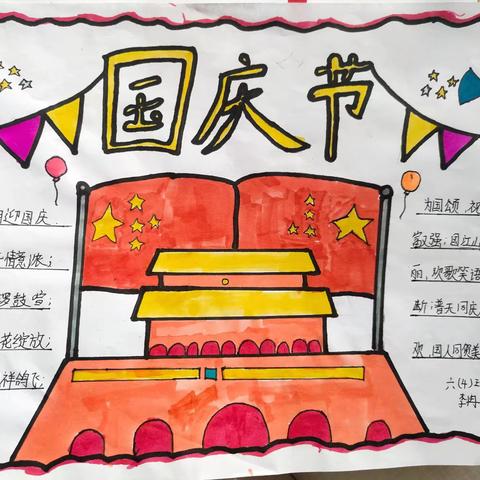 国庆节
迎国庆
情意浓；
锣鼓喧；
花绽放；
祥鸽飞；
为国颂，祝
家强；国江山
丽，欢歌笑语
断；普天同庆
欢，国人同贺美
六（4）
李冉